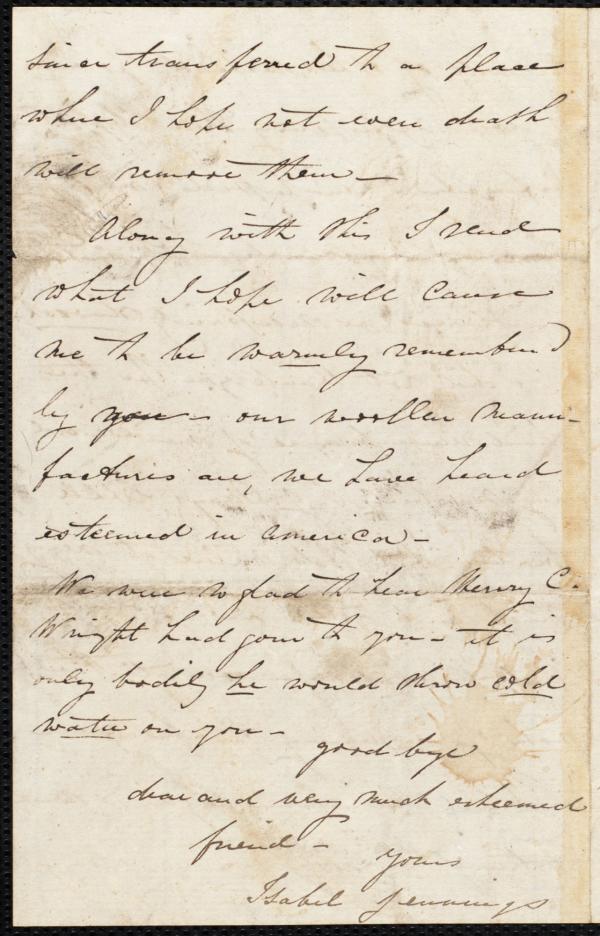 since transferred to a place
where I hope not even death
will remove them —
Along with this I send
what I hope will cause
me to be warmly remember'd
by you — our woollen manu-
factures are, we have heard
esteemed in America —
We were so glad to hear Henry C.
Wright had gone to you — it is
only bodily he would throw cold
water on you —
good bye
dear and very much esteemed
friend —
yours
Isabel Jennings